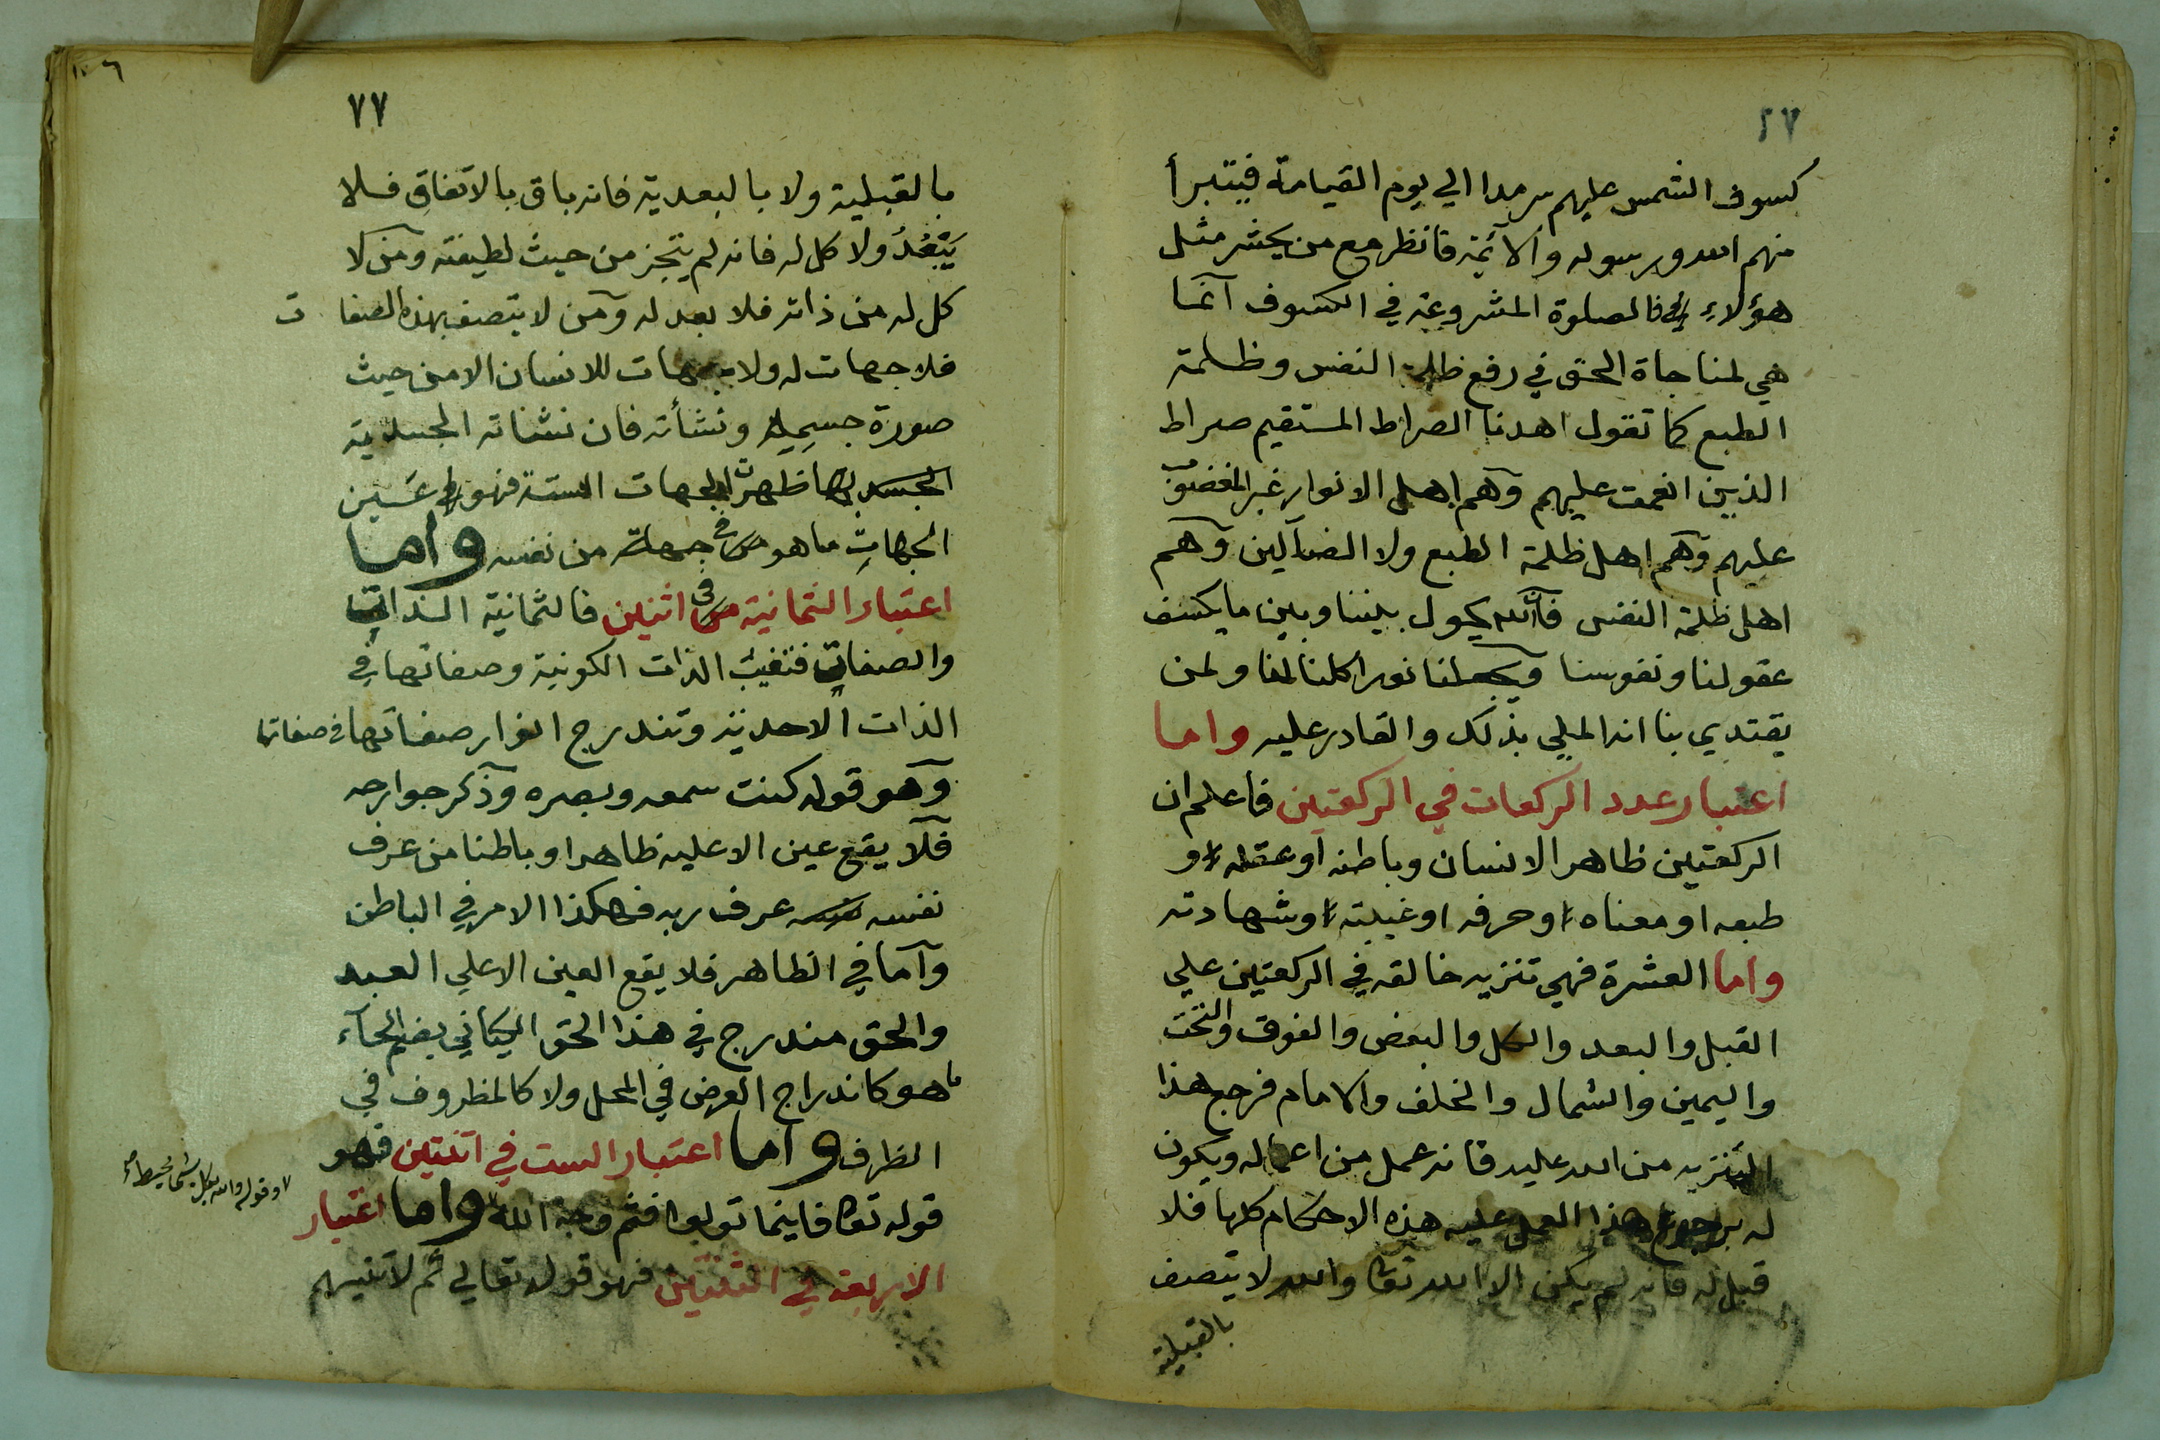 ٢٧
كسوف الشمس عليهم سرمدا الي يوم القيامة فيتبرأ
منهم الله ورسوله والائمة فانظر مع من يحشر مثل
هؤلاء فالصلوة المشروعة في الكسوف انما
هي لمناجاة الحق في رفع ظلمة النفس وظلمة
الطبع كما تقول اهدنا الصراط المستقيم صراط
الذين انعمت عليهم وهم اهل الانوار غير المغضوب
عليهم وهم اهل ظلمة الطبع ولا الضآلين وهم
اهل ظلمة النفس فالله يحول بيننا وبين ما يكسف
عقولنا ونفوسنا ويجعلنا نورا كلنا لنا ولمن
يقتدي بنا انه الملي بذلك والقادر عليه واما
اعتبار عدد الركعات في الركعتين فاعلم ان
الركعتين ظاهر الانسان وباطنه او عقله و
طبعه او معناه او حرفه او غيبته او شهادته
واما العشرة فهي تنزيه خالقه في الركعتين علي
القبل والبعد والكل والبعض والفوق والتحت
واليمين والشمال والخلف والامام فرجع هذا
التنزيه من الله عليه فانه عمل من اعماله ويكون
له برجوع هذا العمل عليه هذه الاحكام كلها فلا
قبل له فانه لم يكن الا الله تعا والله لا يتصف
بالقبلية
١٠٦
٧٧
بالقبلية ولا بالبعدية فانه باق بالاتفاق فلا
يبعد ولا كل له فانه لم يتجز من حيث لطيفته ومن لا
كل له من ذاته فلا بعد له ومن لا يتصف بهذه الصفات
فلا جهات له ولا جهات للانسان الا من حيث
صورة جسمه ونشأته فان نشأته الجسدية
بها ظهرت الجهات الستة فهو عين
الجهات ما هو في جهة من نفسه واما
اعتبار الثمانية في اثنين فالثمانية الذات
والصفات فتغيب الذات الكونية وصفاتها في
الذات الاحدية وتندرج انوار صفاتها في صفاتها
وهو قوله كنت سمعه وبصره وذكر جوارحه
فلا يقع عين الا عليه ظاهرا وباطنا من عرف
نفسه عرف ربه فهكذا الامر في الباطن
واما في الظاهر فلا يقع العين الا علي العبد
والحق مندرج في هذا الحق الكياني بضم الحآء
ما هو كاندراج العرض في المحل ولا كالمظروف في
الظرف واما اعتبار الست في اثنتين فهو
قوله تعا فاينما تولوا فثم وجه الله واما اعتبار
او قوله والله بكل شئ محيط
الاربعة في الثنتين فهو قوله تعالي ثم لآتينهم